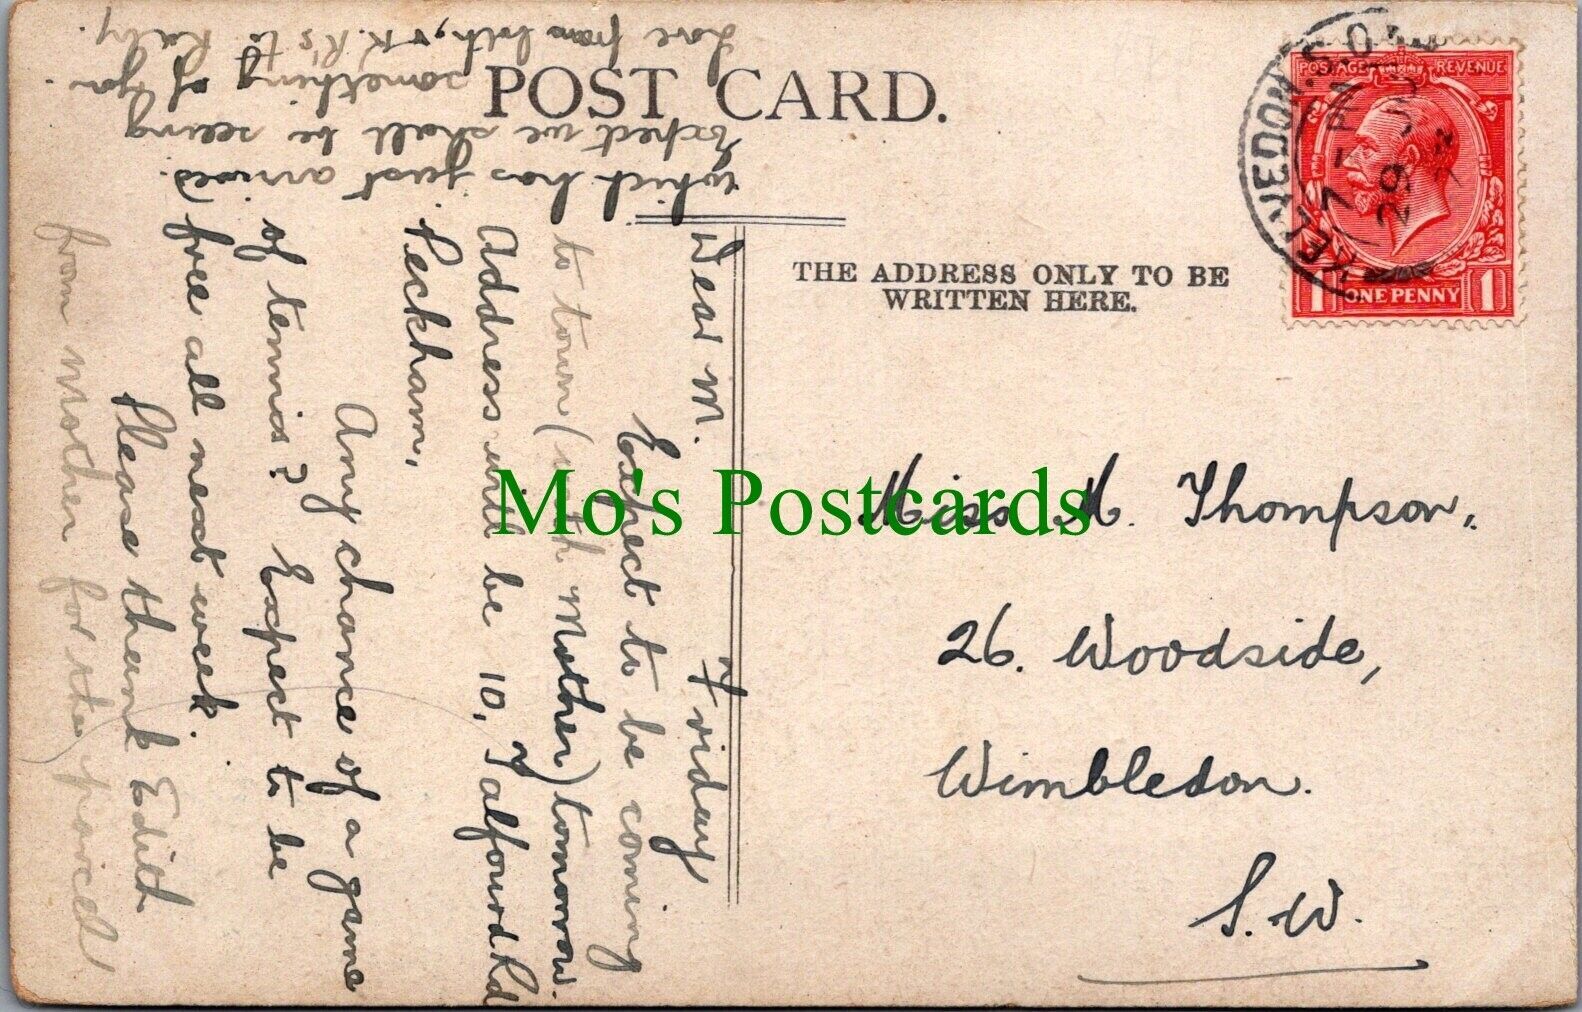 POST CARD.
THE ADDRESS ONLY TO BE
WRITTEN HERE.
POSTAGE REVENUE
1 ONE PENNY 1
KELVEDON S.O.
7 - PM
29
Miss M. Thompson,
26. Woodside,
Wimbledon.
S.W.
Friday
Dear M.
Expect to be coming
to town (with Mother) tomorrow.
Address will be 10, Talfourd Rd
Peckham,
Any chance of a game
of tennis? Expect to be
free all next week.
Please thank Edith
from Mother for the parcel
which has just arrived.
Expect we shall be seeing
something of you
Love from both, & K. R's to Ruby.
Mo's Postcards